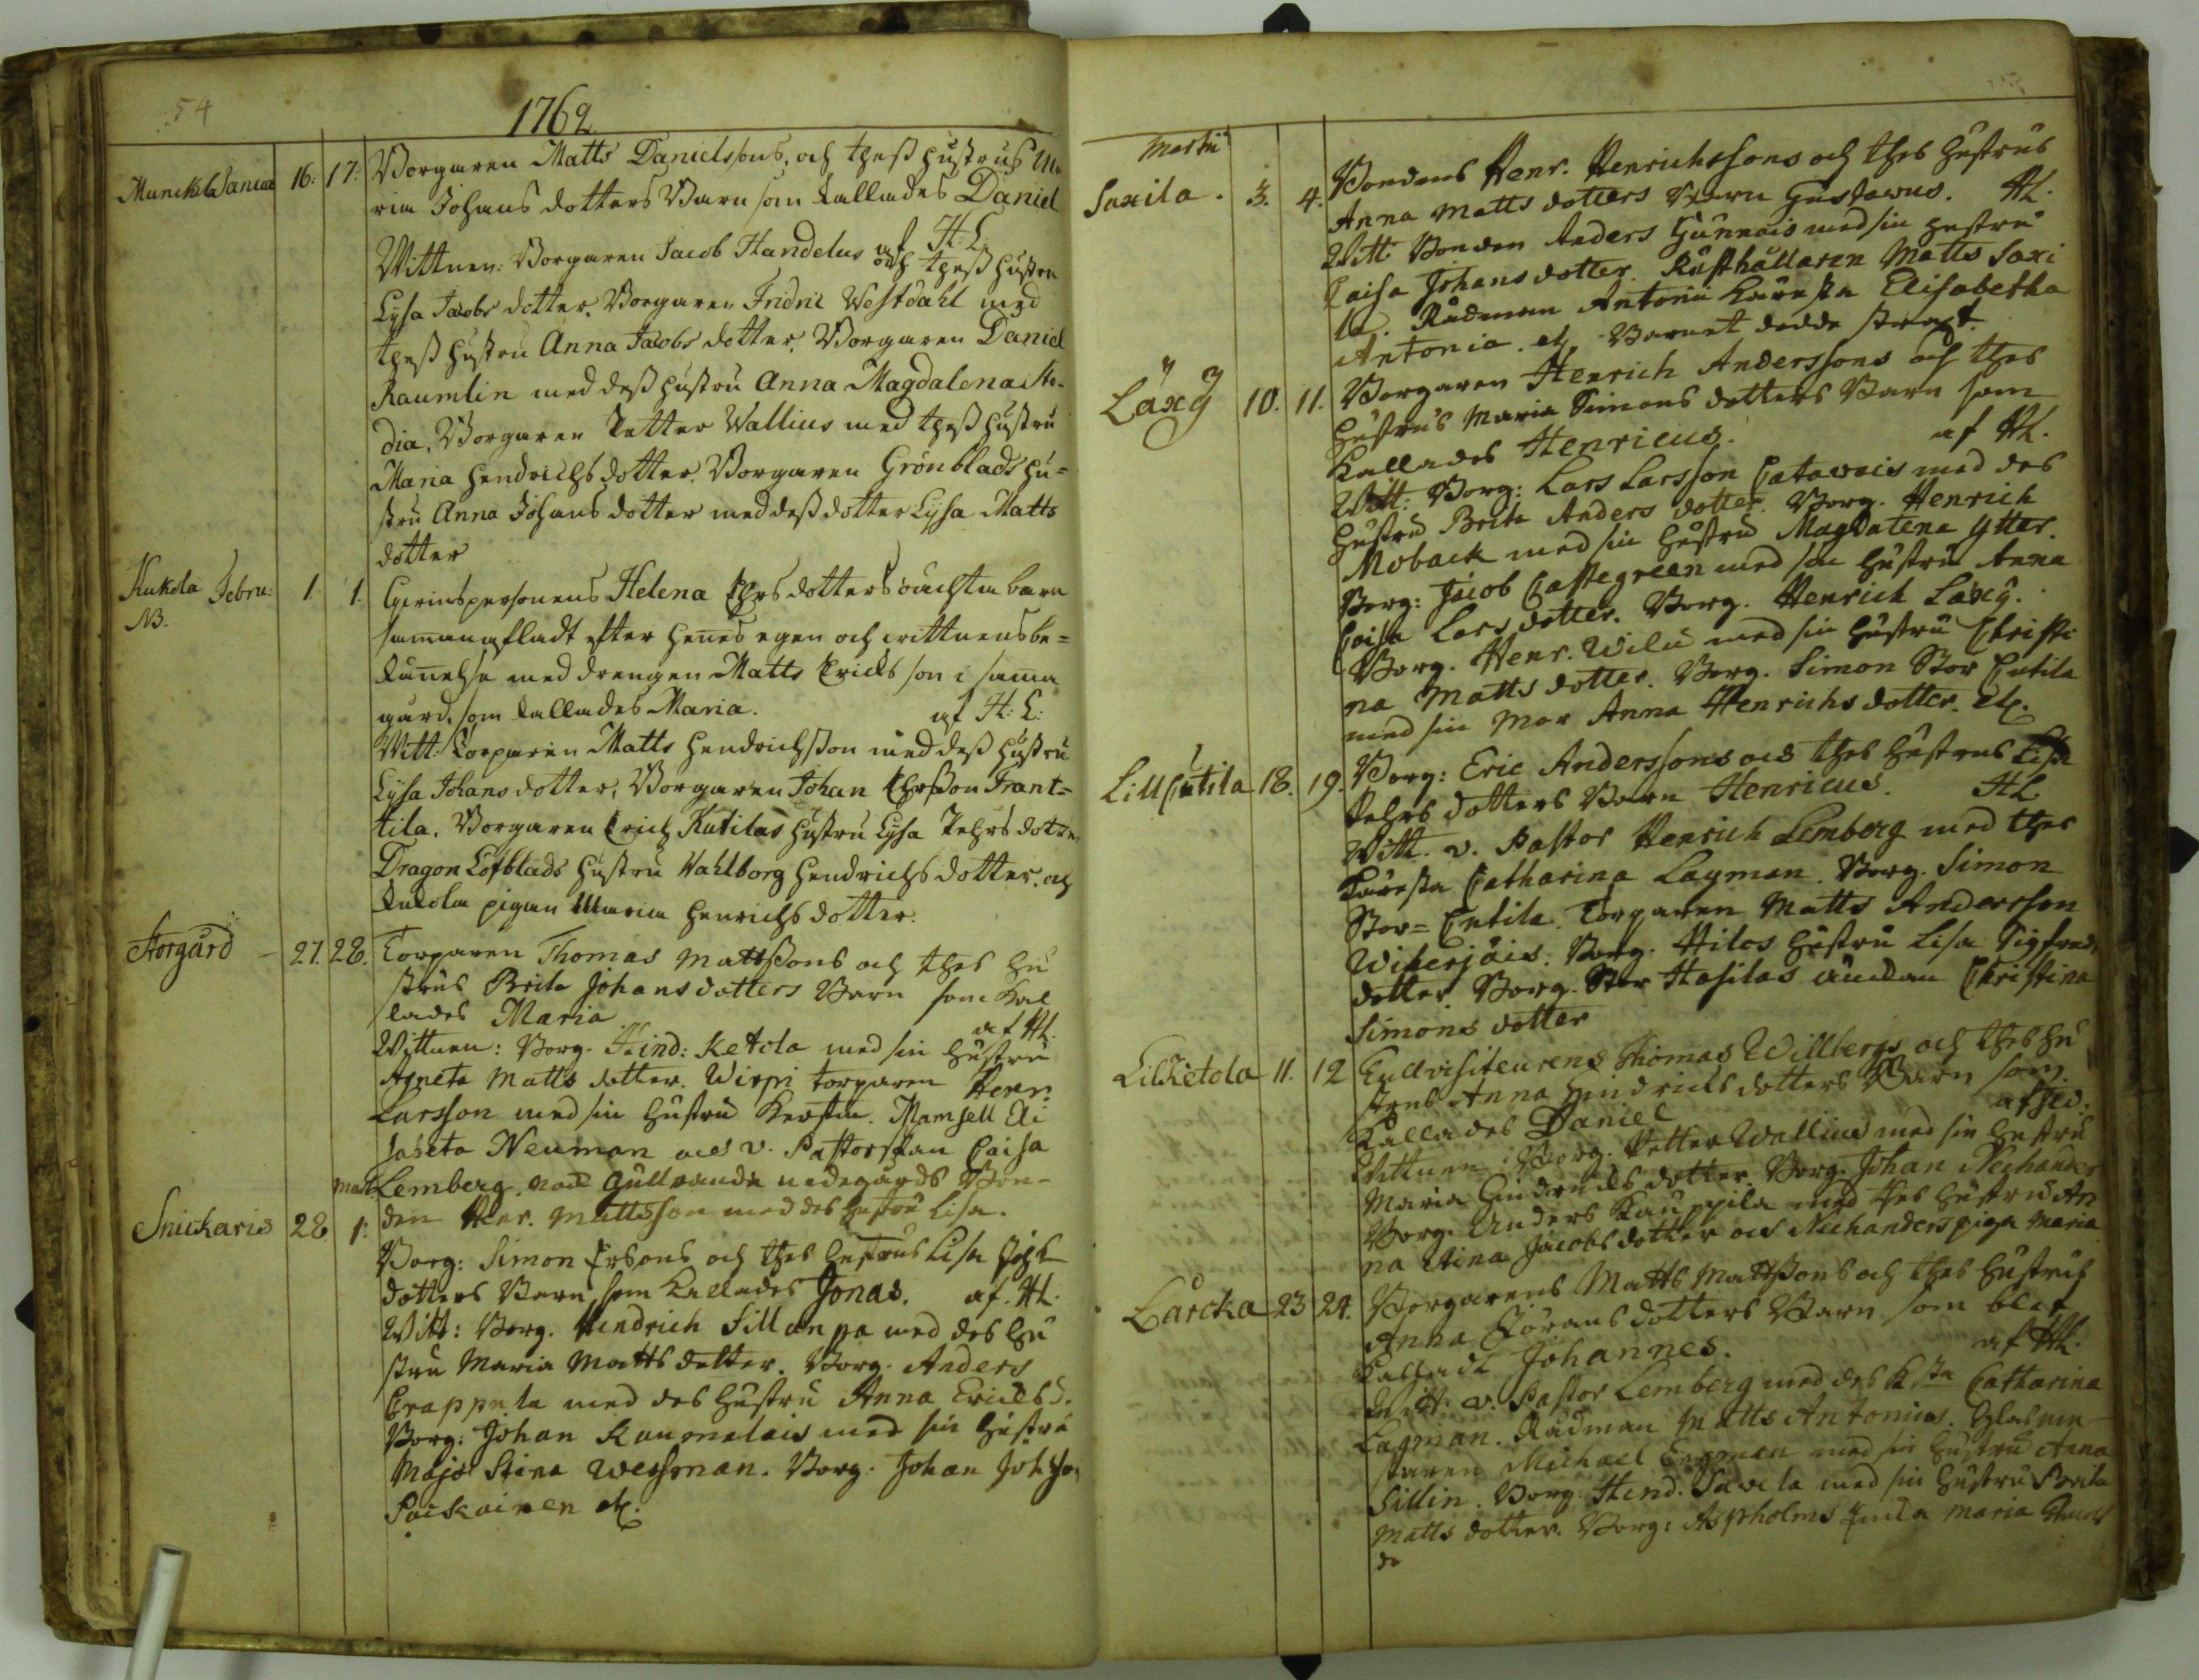 54
1762
Munckila Januar 16: 17: Borgaren Matts Danielssons, och thess hustrus Ma
ria Johans dotters Barn som kallades Daniel
af H:L.
Wittnen: Borgaren Jacob Handelus och thess hustru
Lysa Jacobs dotter. Borgaren Fridric Westdahl med
thess hustru Anna Jacobs dotter, Borgaren Daniel
Raumlin med dess hustru Anna Magdalena Sto-
dia. Borgaren Petter Wallius med thess hustru
Maria Hendrichs dotter. Borgaren Grönblads hu=
stru Anna Johans dotter med dess dotter Lysa Matts
dotter
Kukola Febru: 1 1. Gierinspersonens Helena Ehrs dotters oächta barn
NB.
sammanafladt efter hennes egen och wittnens be=
kännelse med drengen Matts Erichs son i samma
gård, som kallades Maria. af H:L:
Witt: Torparen Matts Hendrichsson med dess hustru
Lysa Johans dotter, Borgaren Johan Ehrsson Frant=
tila. Borgaren Erich Kutilas hustru Lysa Pehrs dotter,
Dragon Löfblads hustru Wahlborg Hendrichs dotter. och
Kukola pigan Maria Henrichs dotter.
Storgård - 27. 28. Torparen Thomas Mattssons och thes hu
strus Brita Johans dotters Barn som kal
lades Maria af HL.
Wittnen: Borg. Hind: Ketola med sin hustru
Agneta Matts dotter. Wirpi torparen Henr.
Larsson med sin hustru Kerstin. Mamsell Eli
sabeta Neuman och v. Pastorskan Caisa
Mart. Lemberg. Gullranda nedegårds Bon-
den Henr. Mattsson med des hustru Lisa.
Snickaris 28. 1: Borg: Simon Ersons och thes hustrus Lisa Joh
dotters Barn som kallades Jonas. af HL.
Witt: Borg. Hendrich Sillanpa med des hu
stru Maria Matts dotter. Borg. Anders
Crappula med des hustru Anna Ericks d.
Borg: Johan Kaunelais med sin hustru
Maja Stina Wessman. Borg. Johan Johsson
Paiskainen etc.
Martii
Saxila. 3. 4. Bondens Henr. Henrichssons och thes hustrus
Anna Matts dotters Barn Gustavus. HL.
Witt: Bonden Anders Gunnais med sin hustru
Caisa Johans dotter. Rusthållaren Matts Saxi
la. Rådman Antonii käresta Elisabetha
Antonia etc. Barnet dödde straxt.
Läxÿ 10. 11. Borgaren Henrich Anderssons och thes
hustrus Maria Simons dotters Barn som
kallades Henricus. af HL.
Witt: Borg: Lars Larsson Catavais med des
hustru Brita Anders dotter. Borg. Henrich
Moback med sin hustru Magdalena Ytter.
Borg: Jacob Castegreen med sin hustru Anna
Caisa Lars dotter. Borg. Henrich Läxÿ.
Borg. Henr. Wilu med sin hustru Christi
na Matts dotter. Borg. Simon Stor Cutila
med sin mor Anna Henrichs dotter. etc.
Lill Cutila 18. 19. Borg: Eric Anderssons och thes hustrus Lisa
Pehrs dotters Barn Henricus. HL.
Witt. v. Pastor Henrich Lemberg med thes
käresta Catharina Lagman. Borg. Simon
Stor= Cutila. Torparen Matts Andersson
Wikerjäis. Borg. Hilos hustru Lisa Sigfreds
dotter. Borg. Stor Hasilas änckan Christina
Simons dotter
Lilketola 11. 12 Tullvisiteurens Thomas Willbergs och thes hu
strus Anna Hindrichs dotters Barn som
kallades Daniel
Wittnen: Borg. Petter Wallius med sin hustru
Maria Hindrichs dotter. Borg. Johan Neihander
Borg. Anders Kauppila med thes hustru An
na Stina Jacobs dotter och Neihanders piga Maria
Lårcka 23 24. Borgarens Matts Mattssons och thes hustrus
Anna Görans dotters Barn som blef
kalladt Johannes. af HL.
Witt. v. Pastor Lemberg med des K:sta Catharina
Lagman. Rådman Matts Antonius. Glasmä-
staren Michael Engman med sin hustru Anna
Sillin. Borg: Hend. Savela med sin hustru Brita
Matts dotter. Borg: Aspholms Maria